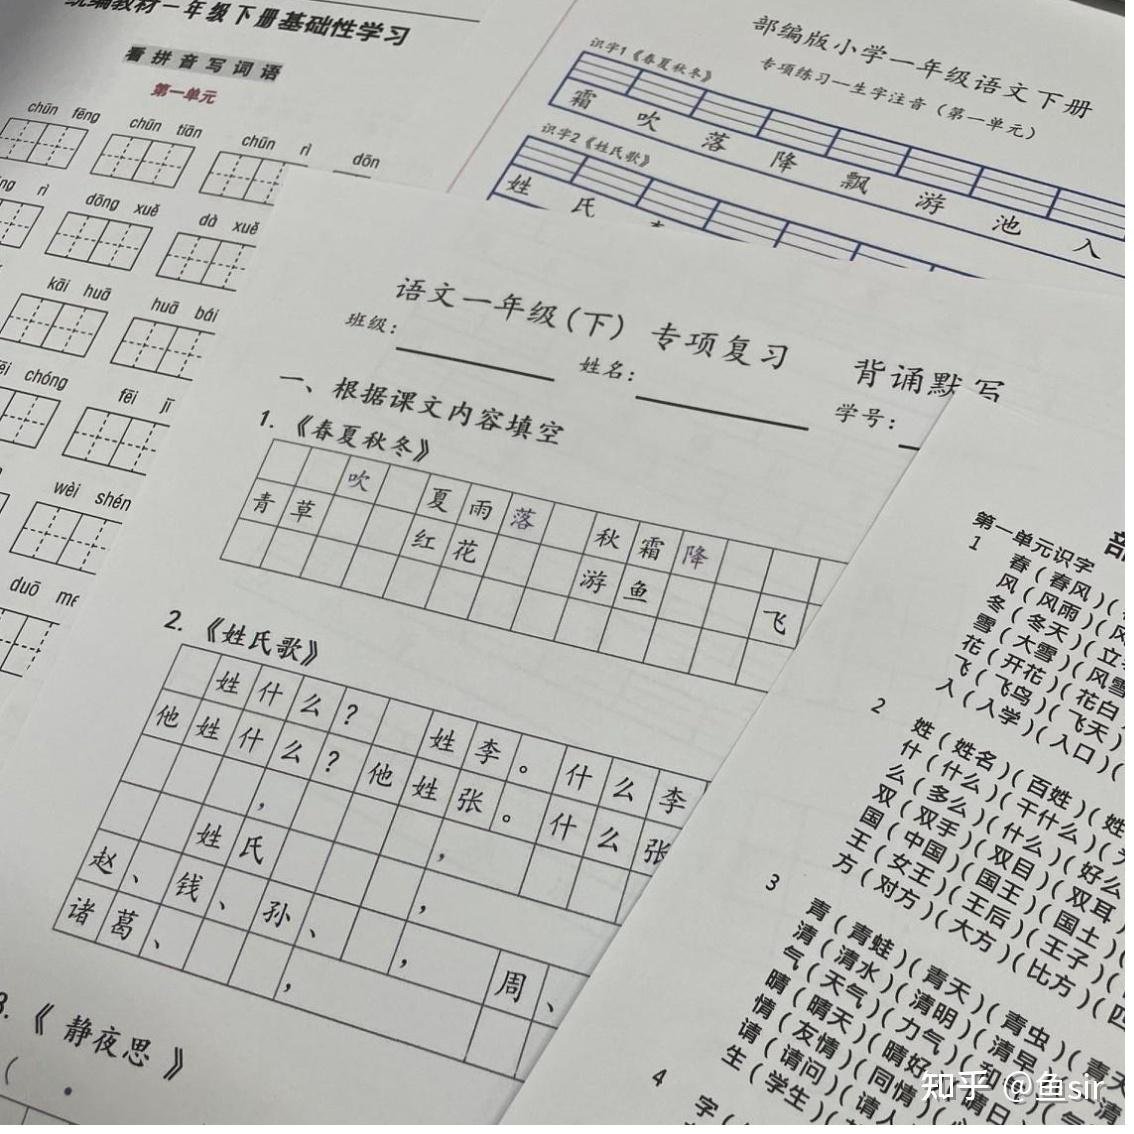 统编教材一年级下册基础性学习
看拼音写词语
第一单元
chūn fēng chūn tiān chūn rì dōn
rì dōng xuě dà xuě
kāi huā huā bái
chóng fēi jī
wèi shén
duō me
部编版小学一年级语文下册
专项练习—生字注音（第一单元）
识字1《春夏秋冬》
霜 吹 落 降 飘 游 池 入
识字2《姓氏歌》
姓 氏
语文一年级（下） 专项复习 背诵默写
班级： 姓名： 学号：
一、根据课文内容填空
1.《春夏秋冬》
吹 夏雨落 秋霜降
青草 红花 游鱼 飞
2.《姓氏歌》
姓什么？ 姓李。什么李
他姓什么？他姓张。什么张
， ，
姓氏 ，
赵、钱、孙、 ， 周、
诸葛、 ，
3.《静夜思》
第一单元识字
1 春（春风）（
风（风雨）（风
冬（冬天）（立
雪（大雪）（风雪
花（开花）（花白
飞（飞鸟）（飞天）
入（入学）（入口）（
2 姓（姓名）（百姓）（姓
什（什么）（干什么）（
么（多么）（什么）（好么
双（双手）（双目）（双耳
国（中国）（国王）（国土
王（女王）（王后）（王子）（
方（对方）（大方）（比方）（四
3 青（青蛙）（青天）（青虫）（青天
清（清水）（清明）（清早）（清
气（天气）（力气）（和气）（气
晴（晴天）（晴好）（晴日）（
情（友情）（同情）（心
请（请问）（请人
生（学生）（
4 字（
知乎 @鱼sir